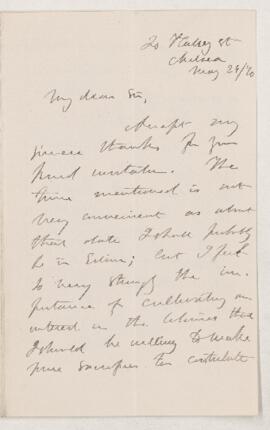 20 Halsey St
Chelsea
May 24/70
My dear Sir,
Accept my
sincere thanks for your
kind invitation. The
time mentioned is not
very convenient as about
that date I shall probably
be in; but I feel
so very strongly the im-
portance of cultivating an
interest in the that
I should be willing to make
some sacrifices to contribute